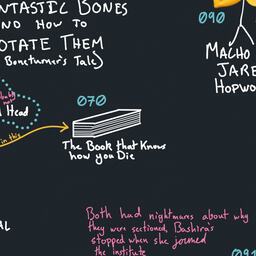 NTASTIC BONES
ND HOW TO
OTATE THEM
Boneturner's Tale)
090
MACHO
JARE
HOPWO
Head
070
in this
The Book that Knows
how you Die
Both had nightmares about why
they were sectioned, Bashira's
stopped when she joined
the institute
AL
091